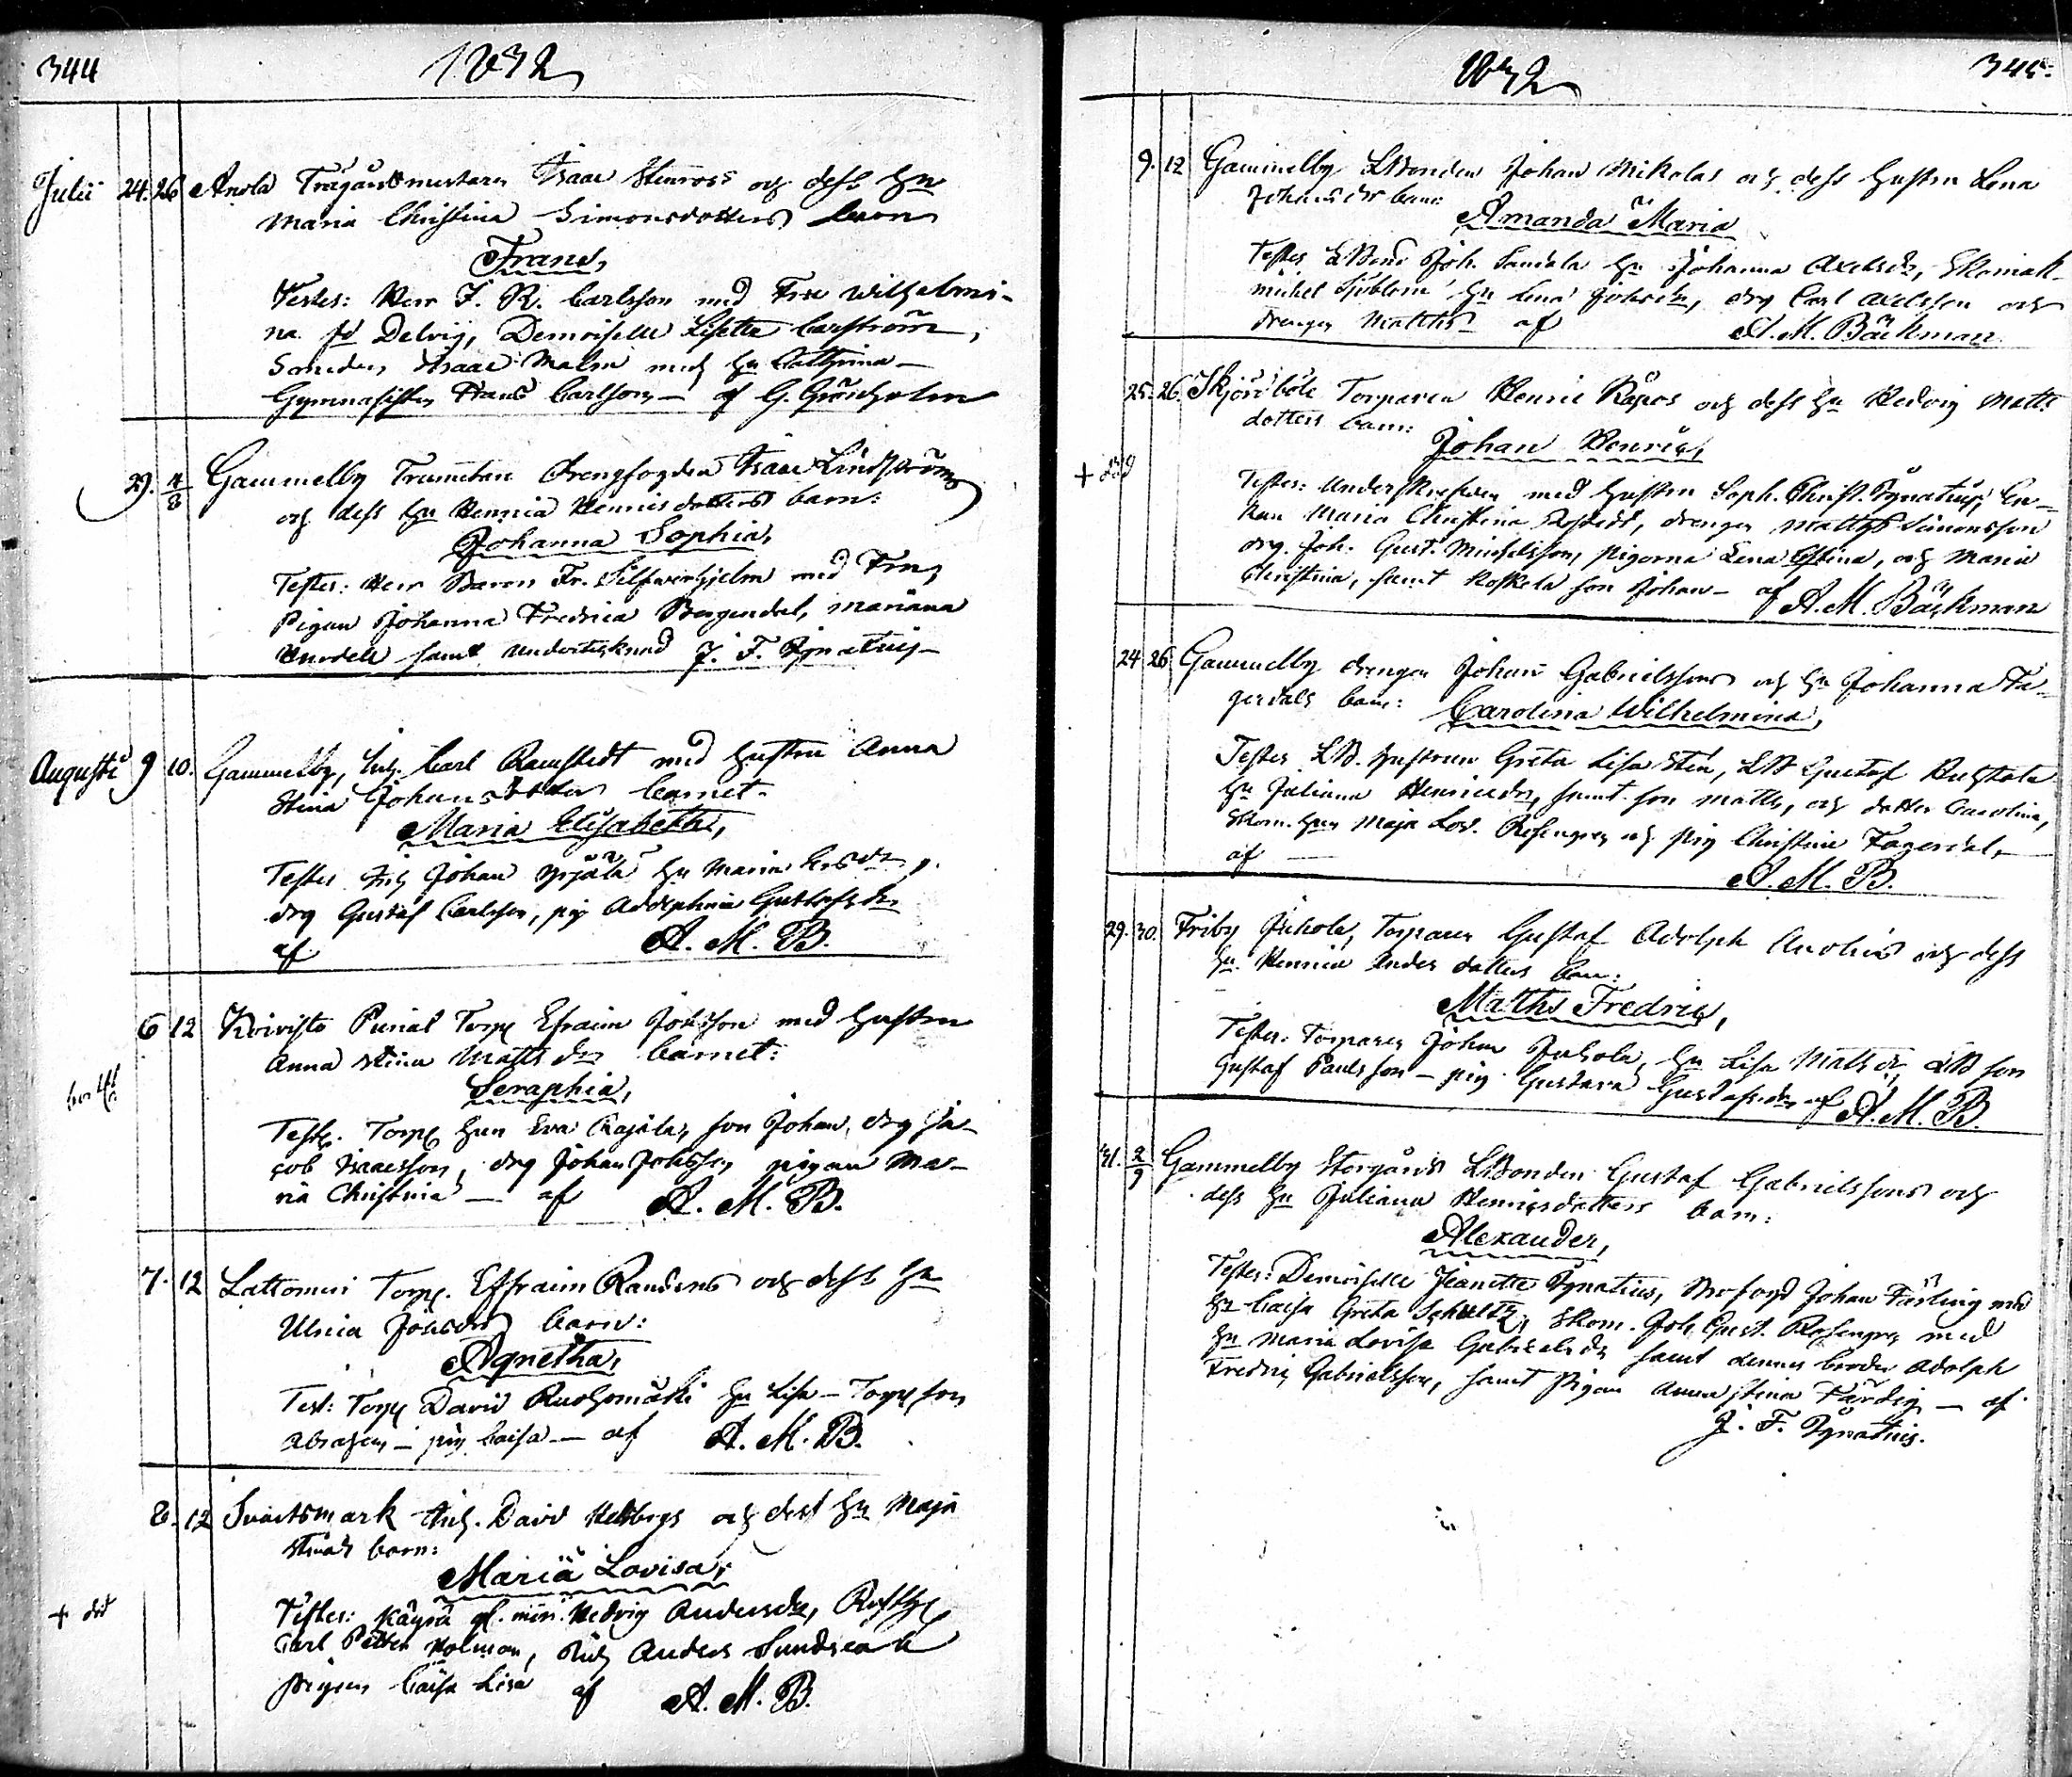 344
1832
Julii 24. 26 Anola Trägårdsmästarn Isaac Stenroos och dess Hu
Maria Christina Simonsdotters barn
Frans,
Testes: Herr J. R. Carlsson med Fru Wilhelmi-
na fö Delvig, Demoiselle Lisette Carström,
Smeden Isaac Malm med Hu Cathrina –
Gymnasisten Frans Carlsson – af G. Grönholm
29. 4/8 Gammelby Trumetare Drengfogden Isaac Lindström
och dess Hu Henrica Henricsdotters barn:
Johanna Sophia,
Testes: Herr Baron Fr. Silfwerhjelm med Fru,
Pigan Johanna Fredrica Bergendal, Mariana
samt undertecknad J. F. Ignatius –
Augusti 9 10. Gammelby, Inh. Carl Ramstedt med hustru Anna
Stina Johansdotters barnet.
Maria Elisabeth,
Testes Inh Johan Hu Maria
drg Gustaf Carlsson, pig Adolphina Gustafsdr
af A. M. B.
6 12 Koivisto Punial Torp Efraim Johsson med hustru
Anna Stina Mattsdr barnet:
Seraphia,
Testes. Torp Hun Eva Cajala, son Johan, drg Ja-
cob Isaacsson, drg Johan Johsson pigan Ma-
ria Christina – af A. M. B.
7. 12 Lattomeri Torp. Effraim Randens och dess Hu
Ulrica Johsdrs barn:
Agnetha,
Test: Torp David Ruohomäki Hu Lisa – Torp son
Abraham – pig Caisa – af A. M. B.
8. 12 Svartsmark Inh. David Hedbergs och dess Hu Maja
Stinas barn:
Maria Lovisa,
+ död
Testes: Käyrä gl. min. Hedvig Andersdr,
Carl Petter Holman, Inh Anders Sundsca
pigan Caisa Lisa af A. M. B.
1832
345.
9. 12 Gammelby LBonden Johan Mikolas och dess hustru Lena
Johansdrs barn:
Amanda Maria
Testes LBond Joh. Sandala Hu Johanna Axelsdr, Skomak.
Michel Sjöblom Hu Lena Johsdr, drg Carl Axelsson och
drengen Matths af A. M. Bäckman
25. 26. Skjörböle Torparen Henric Räpos och dess Hu Hedvig Matts
dotters barn:
Johan Henric,
+ död
Testes: Underskrefven med hustru Soph. Christ. Ignatius, En-
kan Maria Christina drengen Matths Simonsson
drg. Joh. Gust. Michelsson, pigorna Lena Stina, och Maria
Christina, samt Koskela son Johan – af A. M. Bäckman
24 26 Gammelby drengen Johan Gabrielssons och Hu Johanna Fa-
gerdals barn: Carolina Wilhelmina,
Testes LB. hustrun Greta Lisa Sten, LB Gustaf
Hu Juliana Henricsdr, samt son Matts, och dotter Carolina,
Skom. Hun Maja Lov. Rosengren och pig Christina Fagerdal,
af – A. M. B.
29. 30. Friby Juhola, Torparen Gustaf Adolph och dess
Hu Henrica Andersdotters barn:
Matths Fredric,
Testes: Torparen Johan Juhola, Hu Lisa Mattsdr, LB son
Gustaf Paulsson – pig Gustava Gustafsdr af A. M. B.
31. 2/9 Gammelby Storgårds LBonden Gustaf Gabrielssons och
dess Hu Juliana Henricsdotters barn:
Alexander,
Testes: Demoiselle Jeanette Ignatius, Johan Färling med
Hu Caisa Greta Schultz, Skom. Joh. Gust. Rosengren med
Hu Maria Lovisa Gabrielsdr samt dennes broder Adolph
Fredric Gabrielsson, samt Pigan Anna Stina Färdig – af
J. F. Ignatius.